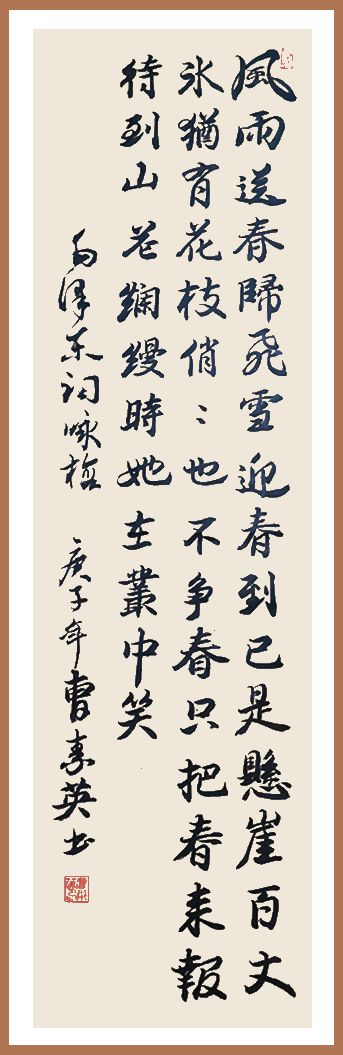 風雨送春歸飛雪迎春到已是懸崖百丈
氷猶有花枝俏〻也不争春只把春来報
待到山花爛縵時她在叢中笑
毛泽东词咏梅 庚子年曹素英书